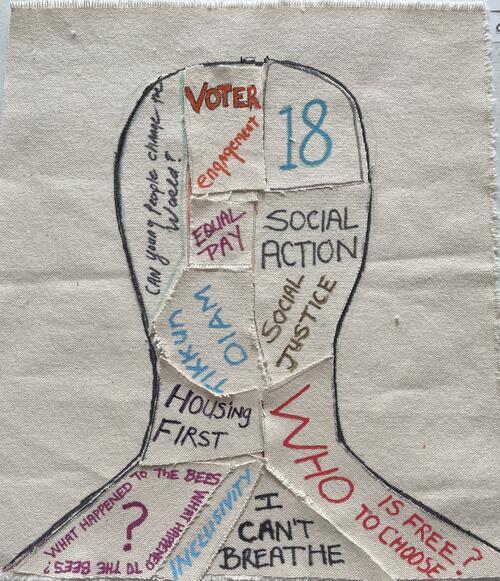 CAN young People change the
World?
VOTER
engagement
18
EQUAL
PAY
SOCIAL
ACTION
TIKKUN
OLAM
SOCIAL
JUSTICE
HOUSING
FIRST
WHO
IS FREE?
TO CHOOSE
WHAT HAPPENED TO THE BEES
?
WHAT HAPPENED
TO THE BEES?
INCLUSIVITY
I
CAN'T
BREATHE